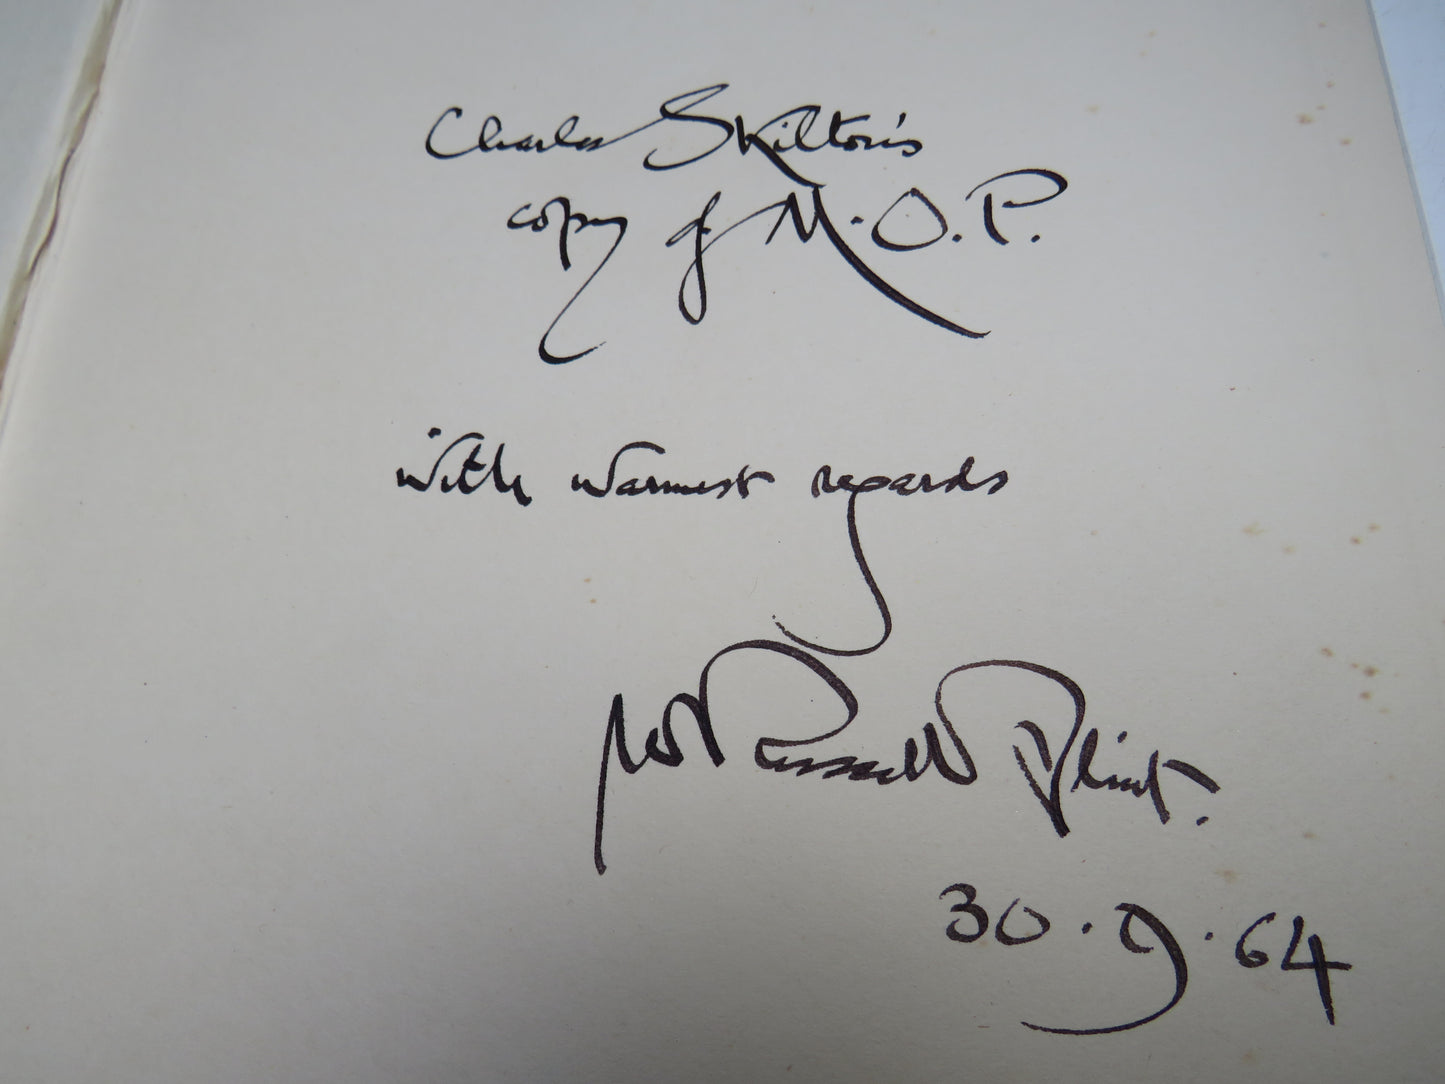 Charles Skilton's
copy of M.O.P.
with warmest regards
W Russell Flint.
30.9.64